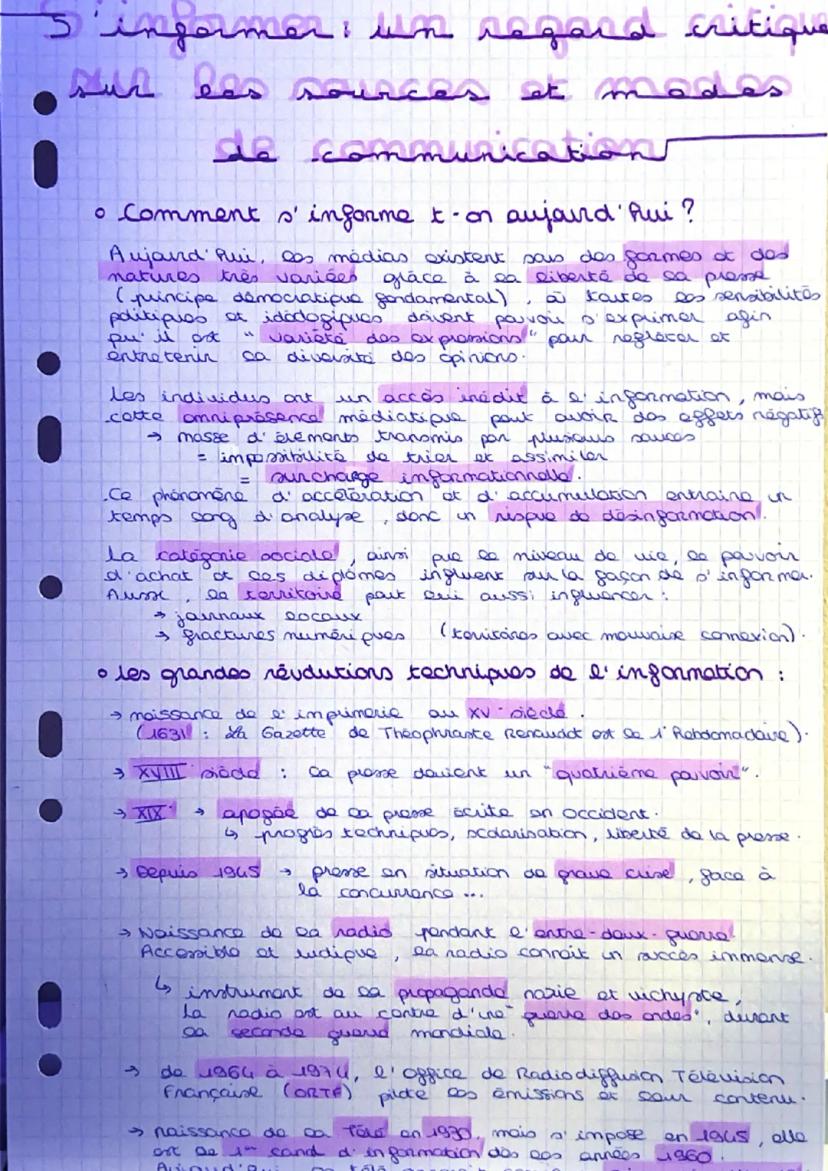 S'informer : un regard critique
sur les sources et modes
de communication
° Comment s'informe t-on aujourd'hui ?
Aujourd'hui, les médias existent sous des formes et des
natures très variées grâce à la liberté de la presse
(principe démocratique fondamental), où toutes les sensibilités
politiques et idéologiques doivent pouvoir s'exprimer afin
qu'il est "variété des expressions" pour refléter et
entretenir la diversité des opinions.
Les individus ont un accès inédit à l'information, mais
cette omniprésence médiatique peut avoir des effets négatifs
→ masse d'éléments transmis par plusieurs sources
= impossibilité de trier et assimiler
= surcharge informationnelle.
Ce phénomène d'accélération et d'accumulation entraine un
temps long d'analyse, donc un risque de désinformation.
La catégorie sociale, ainsi que le niveau de vie, le pouvoir
d'achat et les diplômes influent sur la façon de s'informer.
Aussi, le territoire peut lui aussi influencer :
→ journaux locaux
→ fractures numériques (territoires avec mauvaise connexion).
° Les grandes révolutions techniques de l'information :
→ naissance de l'imprimerie au XVe siècle.
(1631 : La Gazette de Théophraste Renaudot est le 1er hebdomadaire).
→ XVIII siècle : la presse devient un "quatrième pouvoir".
→ XIXe → apogée de la presse écrite en occident.
↳ progrès techniques, scolarisation, liberté de la presse.
→ Depuis 1945 → presse en situation de grave crise, face à
la concurrence ...
→ Naissance de la radio pendant l'entre-deux-guerre.
Accessible et ludique, la radio connait un succès immense.
↳ instrument de la propagande nazie et vichyste,
la radio est au centre d'une "guerre des ondes", durant
la seconde guerre mondiale.
→ de 1964 à 1974, l'office de Radiodiffusion Télévision
Française (ORTF) pilote les émissions et leur contenu.
→ naissance de la Télé en 1930, mais s'impose en 1945, elle
est le 1er canal d'information dès les années 1960.
Aujourd'hui, la télé